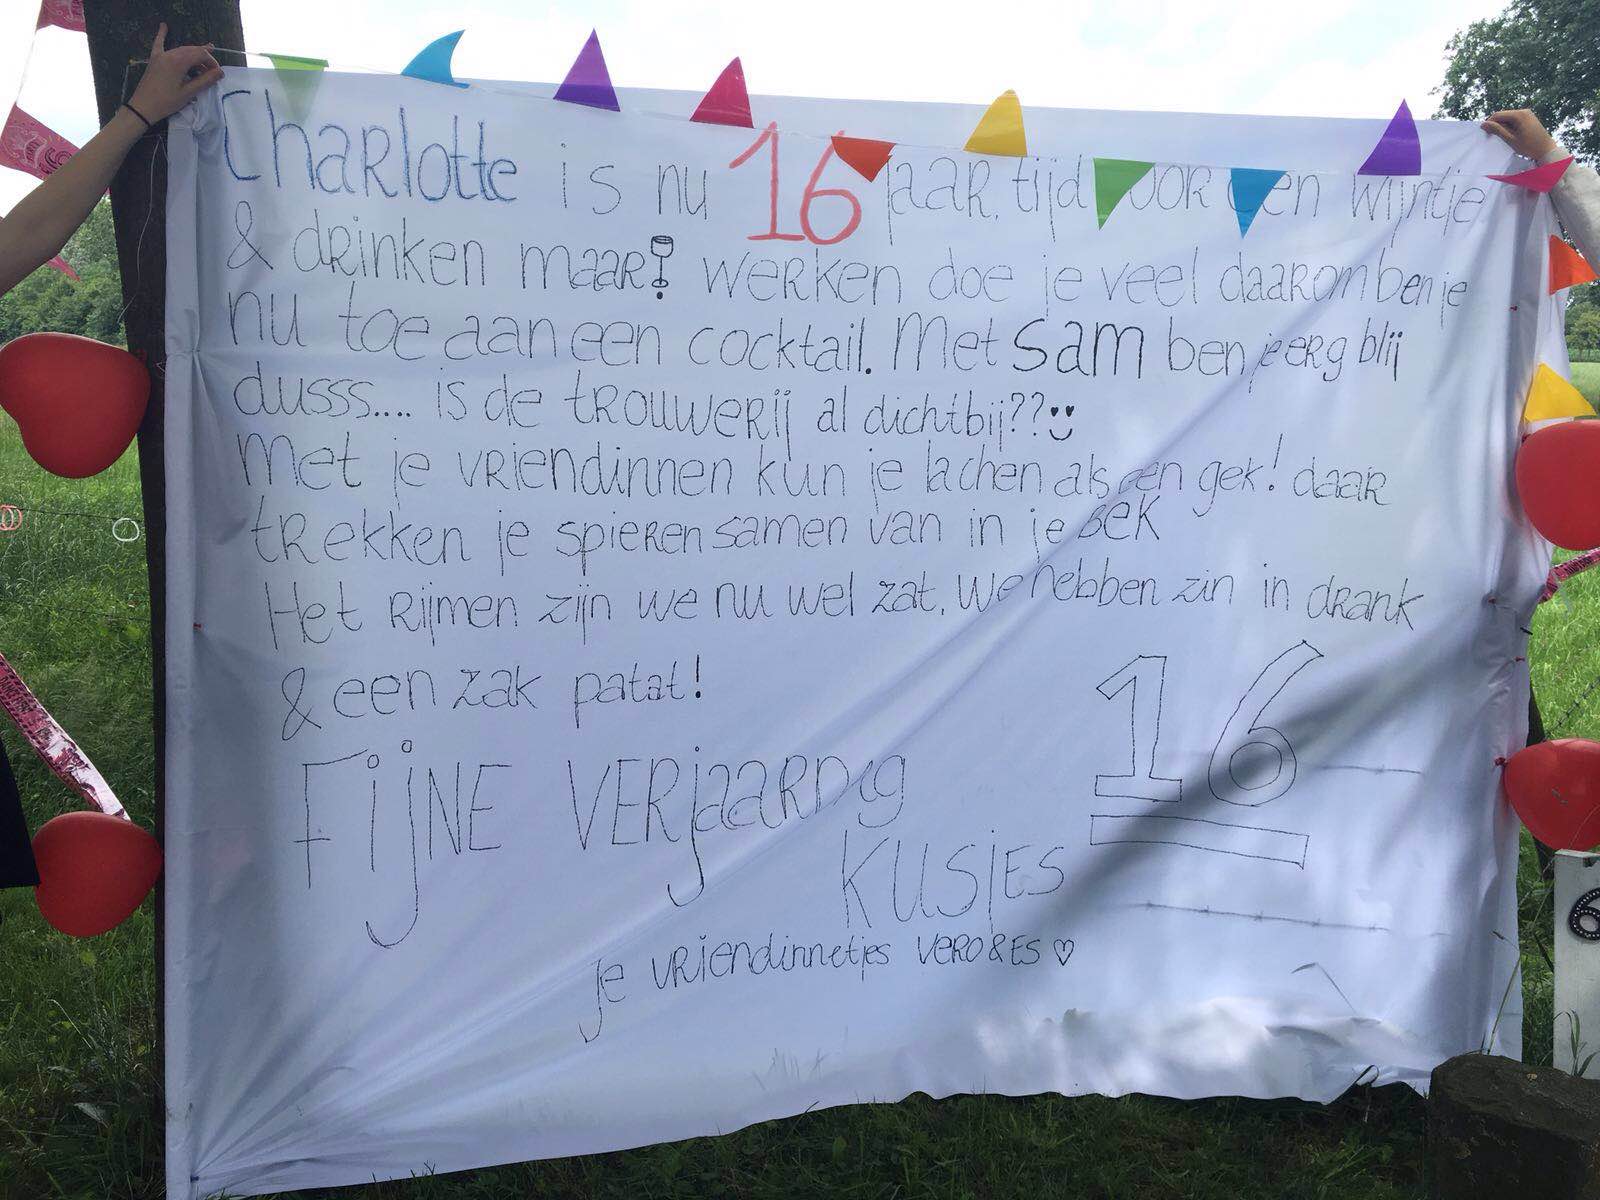 Charlotte is nu 16 jaar, tijd voor een wijntje
& drinken maar! werken doe je veel daarom ben je
nu toe aan een cocktail. Met sam ben je erg blij
dusss.... is de trouwerij al dichtbij??
Met je vriendinnen kun je lachen als een gek! daar
trekken je spieren samen van in je bek
Het rijmen zijn we nu wel zat, we hebben zin in drank
& een zak patat!
16
FijNE VERjaardag
KUSjES
je vriendinnetjes VERO & ES ♡
6